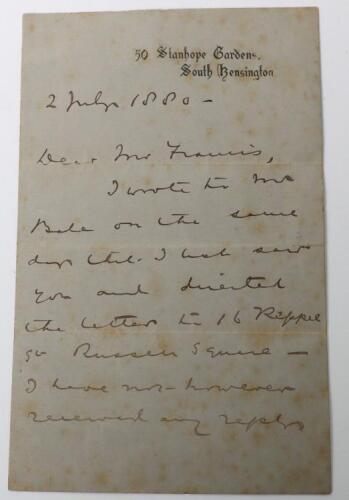 50 Stanhope Gardens,
South Kensington
2 July 1880 -
Dear Mr Francis,
I wrote to Mr
Bale on the same
day that I last saw
you and directed
the letter to 16 Keppel
St Russell Square -
I have not however
received any reply